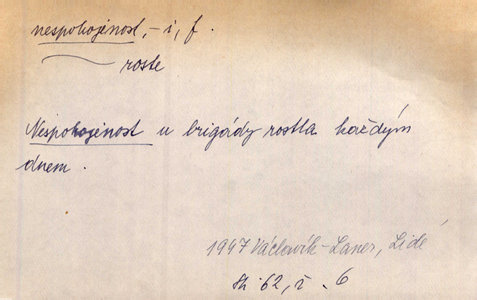 nespokojenost, -i, f.
roste
Nespokojenost u brigády rostla každým
dnem.
1947 Václavík-Laner, Lidé
62, ř. 6